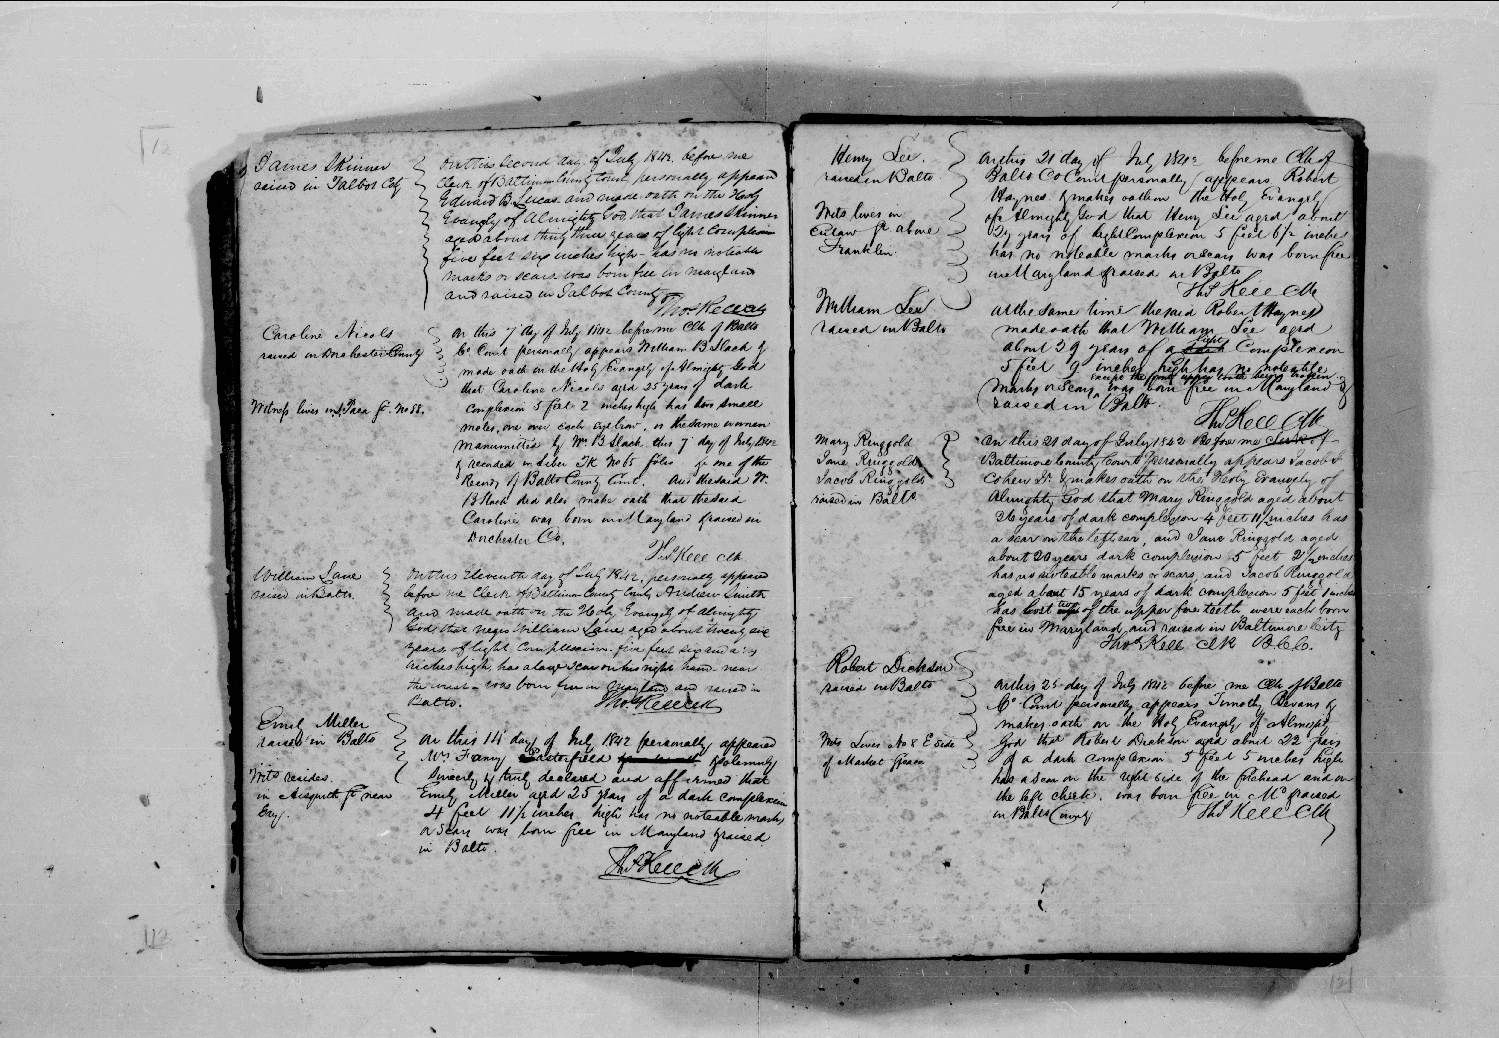 James Skinner
raised in Talbot Cty
On this Second day of July 1842. before me
Clerk of Baltimore County Court, personally appeared
Edward B. Lucas and made oath on the Holy
Evangely of Almighty God that James Skinner
aged about thirty three years of light complexion
five feet six inches high - has no notable
marks or scars was born free in maryland
and raised in Talbot County
Thos Kell Clk
Caroline Nicols
raised in Dorchester County
Witness lives in Paca St. No 58.
On this 7 day of July 1842 before me Clk of Balto
Co Court personally appears William B Slack &
made oath on the Holy Evangely of Almighty God
that Caroline Nicols aged 25 years of dark
complexion 5 feet 2 inches high has two small
moles, one over each eye brow, is the same woman
manumitted by Wm B Slack this 7 day of July 1842
& recorded in Liber TK No 65 folio one of the
Records of Balto County Court. And the said W.
B Slack did also make oath that the said
Caroline was born in Maryland & raised in
Dorchester Co.
Ths Kell Clk
William Lane
raised in Balto.
On this Eleventh day of July 1842, personally appeared
before me Clerk of Baltimore County Court Andrew Smith
and made oath on the Holy Evangely of Almighty
God, that negro William Lane, aged about twenty six
years, of light complexion - five feet six and a ½
inches high, has a scar on his right hand near
the wrist - was born free in Maryland and raised in
Balto.
Thos Kell Clk
Emily Miller
raised in Balto
Wits resides.
in Aisquith St near
Eny.
On this 14 day of July 1842 personally appeared
Mrs Fanny & solemnly
sincerely & truly declared and affirmed that
Emily Miller aged 25 years of a dark complexion
4 feet 11½ inches high has no noteable marks
or scars was born free in Maryland & raised
in Balto.
Ths Kell Clk
Henry Lee.
raised in Balto
Wits lives in
St. above
Franklin.
On this 21 day of July 1842 before me Clk of
Balto Co Court personally appears Robert
Haynes & makes oath on the Holy Evangely
of Almighty God that Henry Lee aged about
years of light complexion 5 feet 6½ inches
has no noteable marks or scars was born free
in Maryland & raised in Balto
Ths Kell Clk
William Lee
raised in Balto
At the same time the said Robert Haynes
made oath that William Lee aged
about 29 years of a light Complexion
5 feet 9 inches high has no noteable
marks or scars except the front upper teeth being broken was born free in Maryland &
raised in Balto.
Ths Kell Clk
Mary Ringgold
Jane Ringgold
Jacob Ringgold
raised in Balto
On this 21 day of July 1842 Before me Clerk of
Baltimore County Court Personally appears Jacob I
Cohen Jr & makes oath on the Holy Evangely of
Almighty God that Mary Ringgold aged about
26 years of dark complexion 4 feet 11½ inches has
a scar on the left ear, and Jane Ringgold aged
about 20 years dark complexion 5 feet 2½ inches
has no noteable marks or scars, and Jacob Ringgold
aged about 15 years of dark complexion 5 feet 1 inches
has lost two of the upper fore teeth were each born
free in Maryland, and raised in Baltimore City
Thos Kell Clk B.C.C.
Robert Dickson
raised in Balto
Wits Lives No 8 E side
of Market Space
On this 25 day of July 1842 before me Clk of Balto
Co Court personally appears Timothy Bevans &
makes oath on the Holy Evangely of Almighty
God that Robert Dickson aged about 22 years
of a dark complexion 5 feet 5 inches high
has a scar on the right side of the forehead and on
the left cheek. was born free in Md & raised
in Balto County
Ths Kell Clk